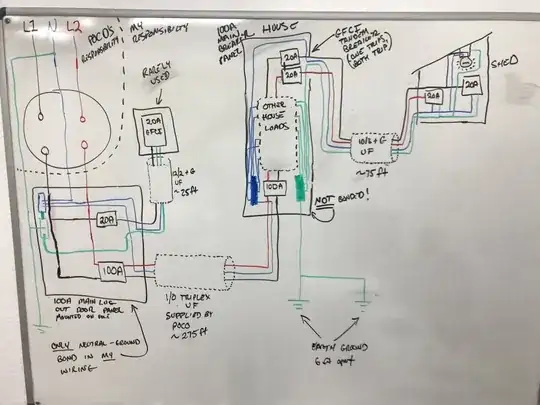 L1 N L2
POCO'S
RESPONSIBILITY
MY
RESPONSIBILITY
RARELY
USED
20A
GFCI
12/2 + G
UF
~ 25 ft
20A
100A
100A MAIN LUG
OUT DOOR PANEL
MOUNTED ON POLE
ONLY NEUTRAL-GROUND
BOND IN MY
WIRING
1/0 TRIPLEX
UF
SUPPLIED BY
POCO
~ 275 ft
100A
MAIN
BREAKER
PANEL
HOUSE
20A
20A
OTHER
HOUSE
LOADS
100A
GFCI
TANDEM
BREAKER
(ONE TRIPS,
BOTH TRIP)
NOT BONDED!
10/2 + G
UF
~75 ft
SHED
20A
20A
EARTH GROUND
6 ft apart